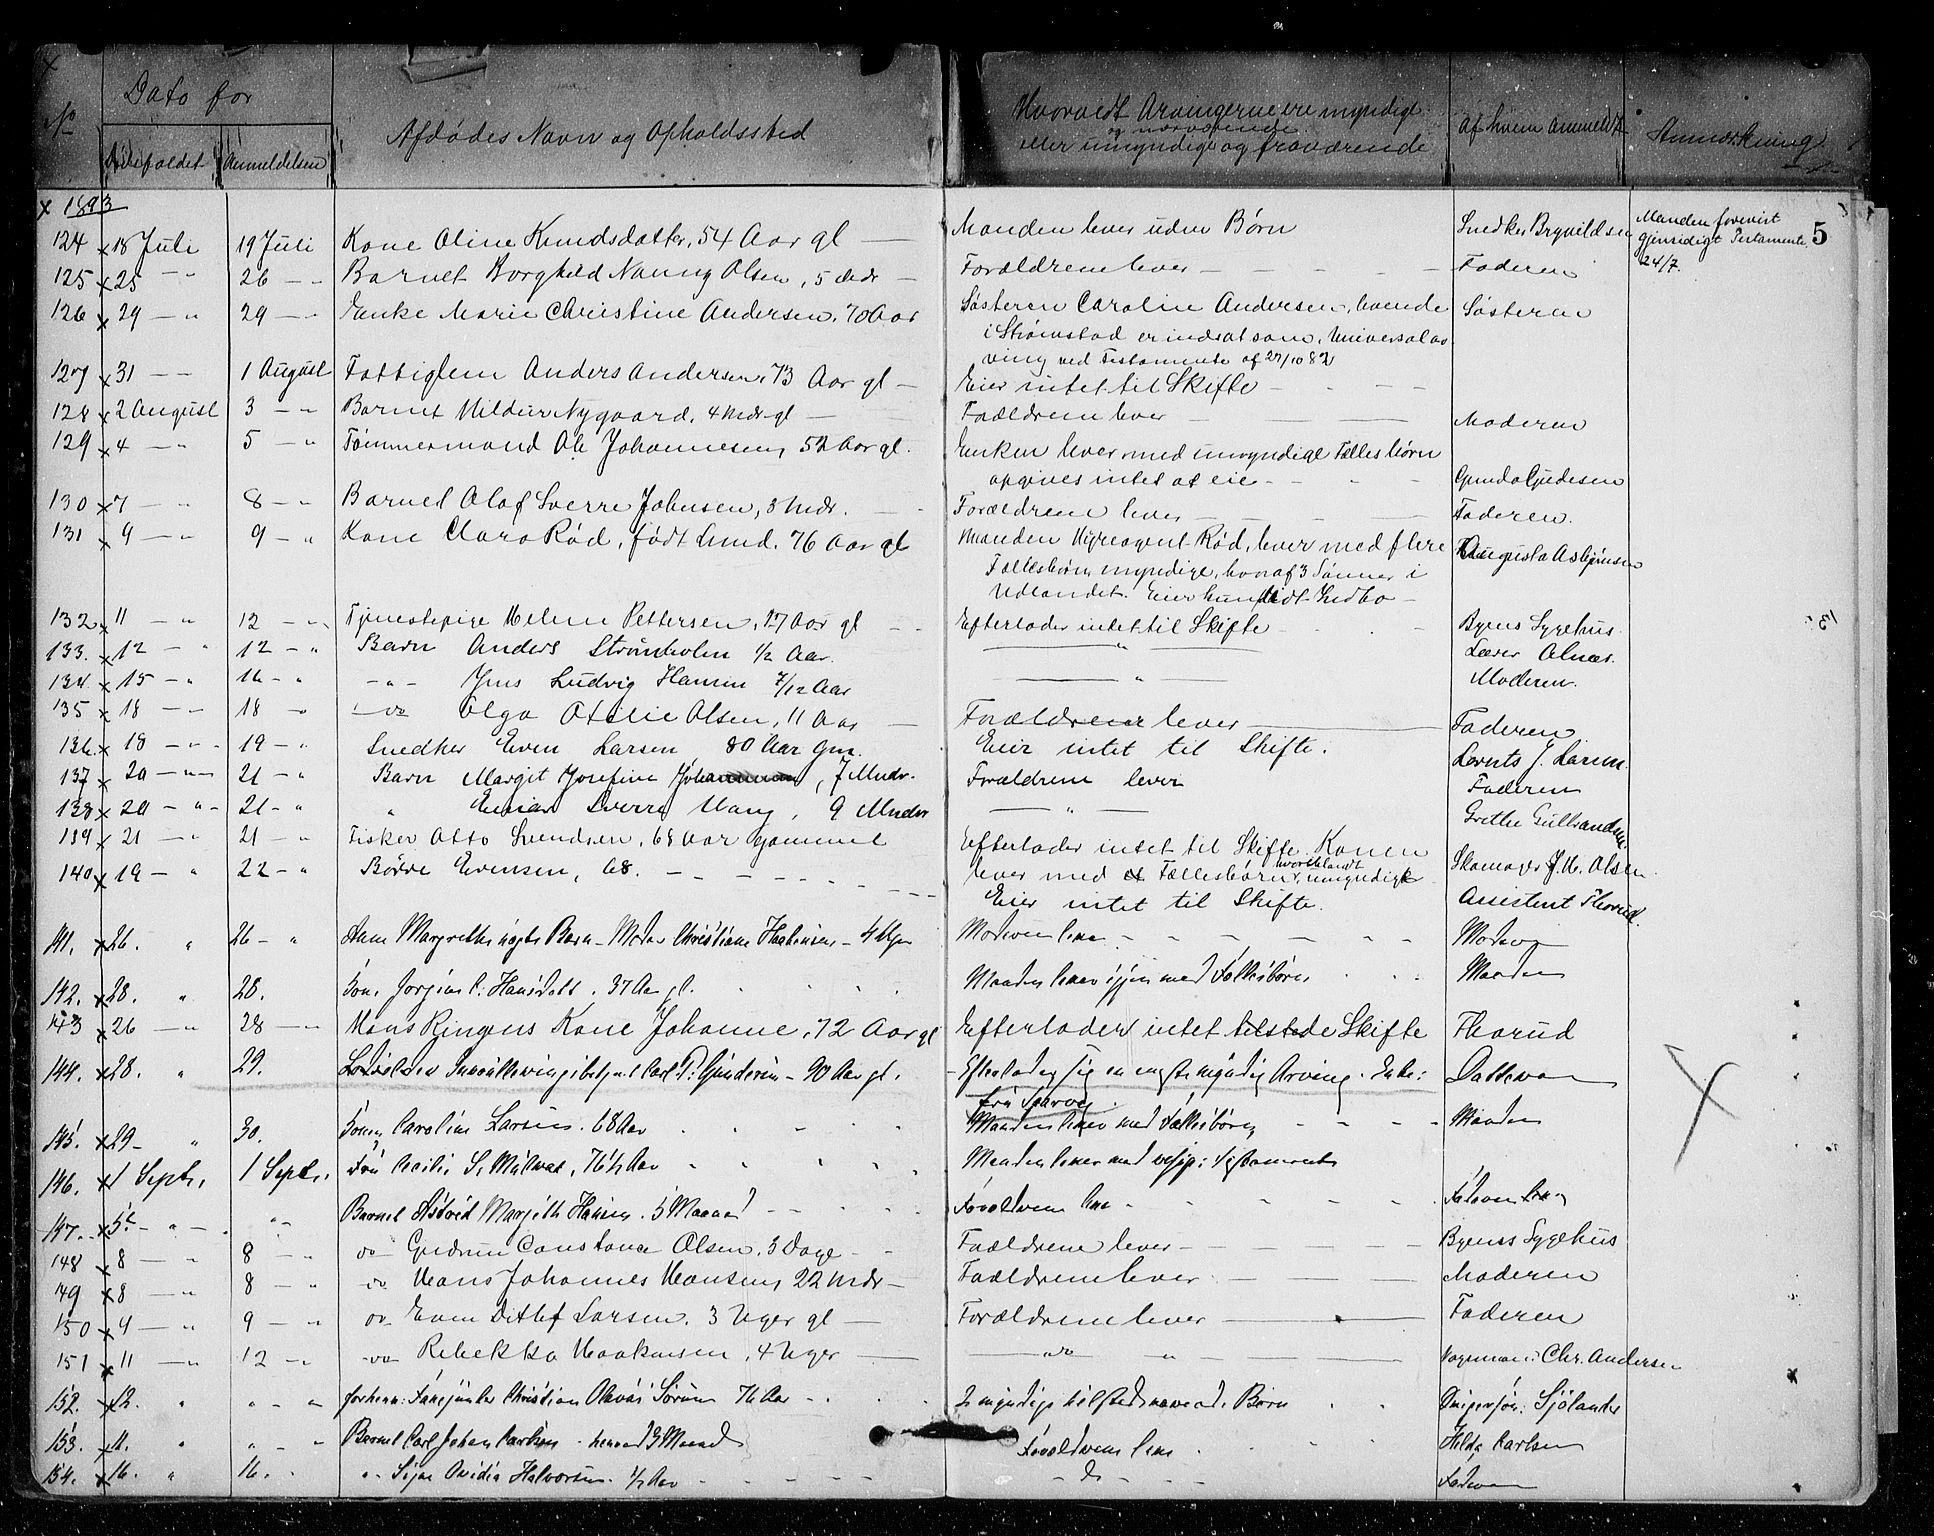 No
Dato for
Dødsfaldet Anmeldelsen
Afdødes Navn og Opholdssted
Hvorvidt Arvingerne ere myndige
og nærværende
eller umyndige og fraværende
Af hvem anmeldt
Anmærkning
5
1893
124 18 Juli 19 Juli Kone Oline Knudsdatter, 54 Aar gl — Manden lever uden Børn Snedker Brynildsen Manden forevist
gjensidigt Testamente
24/7.
125 25 — " 26 — " Barnet Borghild Nanny Olsen, 5 Mdr — Forældrene lever — Faderen
126 29 — " 29 — " Enke Marie Christine Andersen, 70 Aar Søsteren Caroline Andersen, boende Søsteren
i Strømstad er indsat som Universalar
ving ved Testamente af 27/10 82
127 31 — " 1 August Fattiglem Anders Andersen, 73 Aar gl — Eier intet til Skifte —
128 2 August 3 — " Barnet Hildur Nygaard, 4 Mdr gl — Forældrene lever — Moderen
129 4 — " 5 — " Tømmermand Ole Johannesen, 52 Aar gl. Enken lever med umyndige Fælles børn
opgives intet at eie — Gunda Gudesen
130 7 — " 8 — " Barnet Olaf Sverre Johnsen, 3 Mdr. — Forældrene lever — Faderen.
131 9 — " 9 — " Kone Clara Rød, født Lund. 76 Aar gl Manden Hyreagent Rød, lever med flere Augusta Asbjørnsen
Fællesbørn myndige, hvoraf 3 Sønner i
Udlandet. Eier kun lidt Indbo —
132 11 — " 12 — " Tjenestepige Helene Pettersen, 17 Aar gl — Efterlader intet til Skifte — Byens Sygehus.
133. 12 — " 12 — " Barn Anders Strømholm 1/2 Aar. — " — Lærer Alnæs.
134. 15 — " 16 — " — " — Jens Ludvig Hansen 7/12 Aar — " — Moderen.
135 18 — " 18 — " do Olga Otelie Olsen, 11 Aar — Forældrene lever — Faderen
136. 18 — " 19 — " Snedker Even Larsen, 80 Aar gm. Eier intet til Skifte. Lorents J. Larsen.
137 20 — " 21 — " Barn Margit Josefine Johannesen, 7 Mndr. Forældrene lever Faderen
138 20 — " 21 — " " Einar Sverre Haug, 9 Mndr — " — Grethe Gulbrandsen.
139 21 — " 21 — " Fisker Otto Svendsen, 68 Aar gammel Efterlader intet til Skifte. Konen
hvoriblandt
140 19 — " 22 — " Børre Evensen, 68. — lever med Fællesbørn, umyndige Skomager J. H. Olsen
Eier intet til Skifte. Assistent Thorud.
141. 26. " 26 — " Anne Margrethe døgts Barn — Moder Christiane Haakensen — 4 Uger Moderen lever — Moder
142. 28. " 28. Kone Jorgine C. Hansdatt. 37 Aar gl. Manden lever igjen med Fællesbørn Manden
143 26 — " 28 — " Hans Ringens Kone Johanne, 72 Aar gl Efterlader intet tilstede Skifte Thorud
144. 28. " 29. Carl D. Gundersen — 90 Aar gl. — Efterlader sig en eneste myndig Arving. Enke: Datteren
fru Sparve.
145. 29 — " 30. Kone Caroline Larsen. 68 Aar Manden lever med Fællesbørn — Manden
146. 1 Septr. 1 Septr. Fru Cecilie S. 76 1/2 Aar Manden lever med Testamente
147. 5 — " — " Barnet Astrid Margith Hansen. 5 Maaned — Forældrene leve — Faderen
148 8 — " 8 — " do Gudrun Constance Olsen, 3 Dage — Forældrene lever — Byens Sygehus
149 8 — " 8 — " do Hans Johannes Hansen, 22 Mdr — Forældrene lever — Moderen
150 9 — " 9 — " do Even Ditlef Larsen. 3 Uger gl — Forældrene lever — Faderen
151 11 — " 12 — " do Rebekka Haakonsen, 4 Uger — do " — Vognmand Chr. Andersen
152. 12. " " — " forhenv: Christian Olavus Sørum 76 Aar 2 myndige tilstedeværende Børn Sjölander
153. 11. " " — " Barnet Carl Johan Carlsen henved 3 Maaned Forældrene leve Hilda Carlsen
154. 16. " 16. " Signe Ovidia Halvorsen. 1/2 Aar — d — Faderen